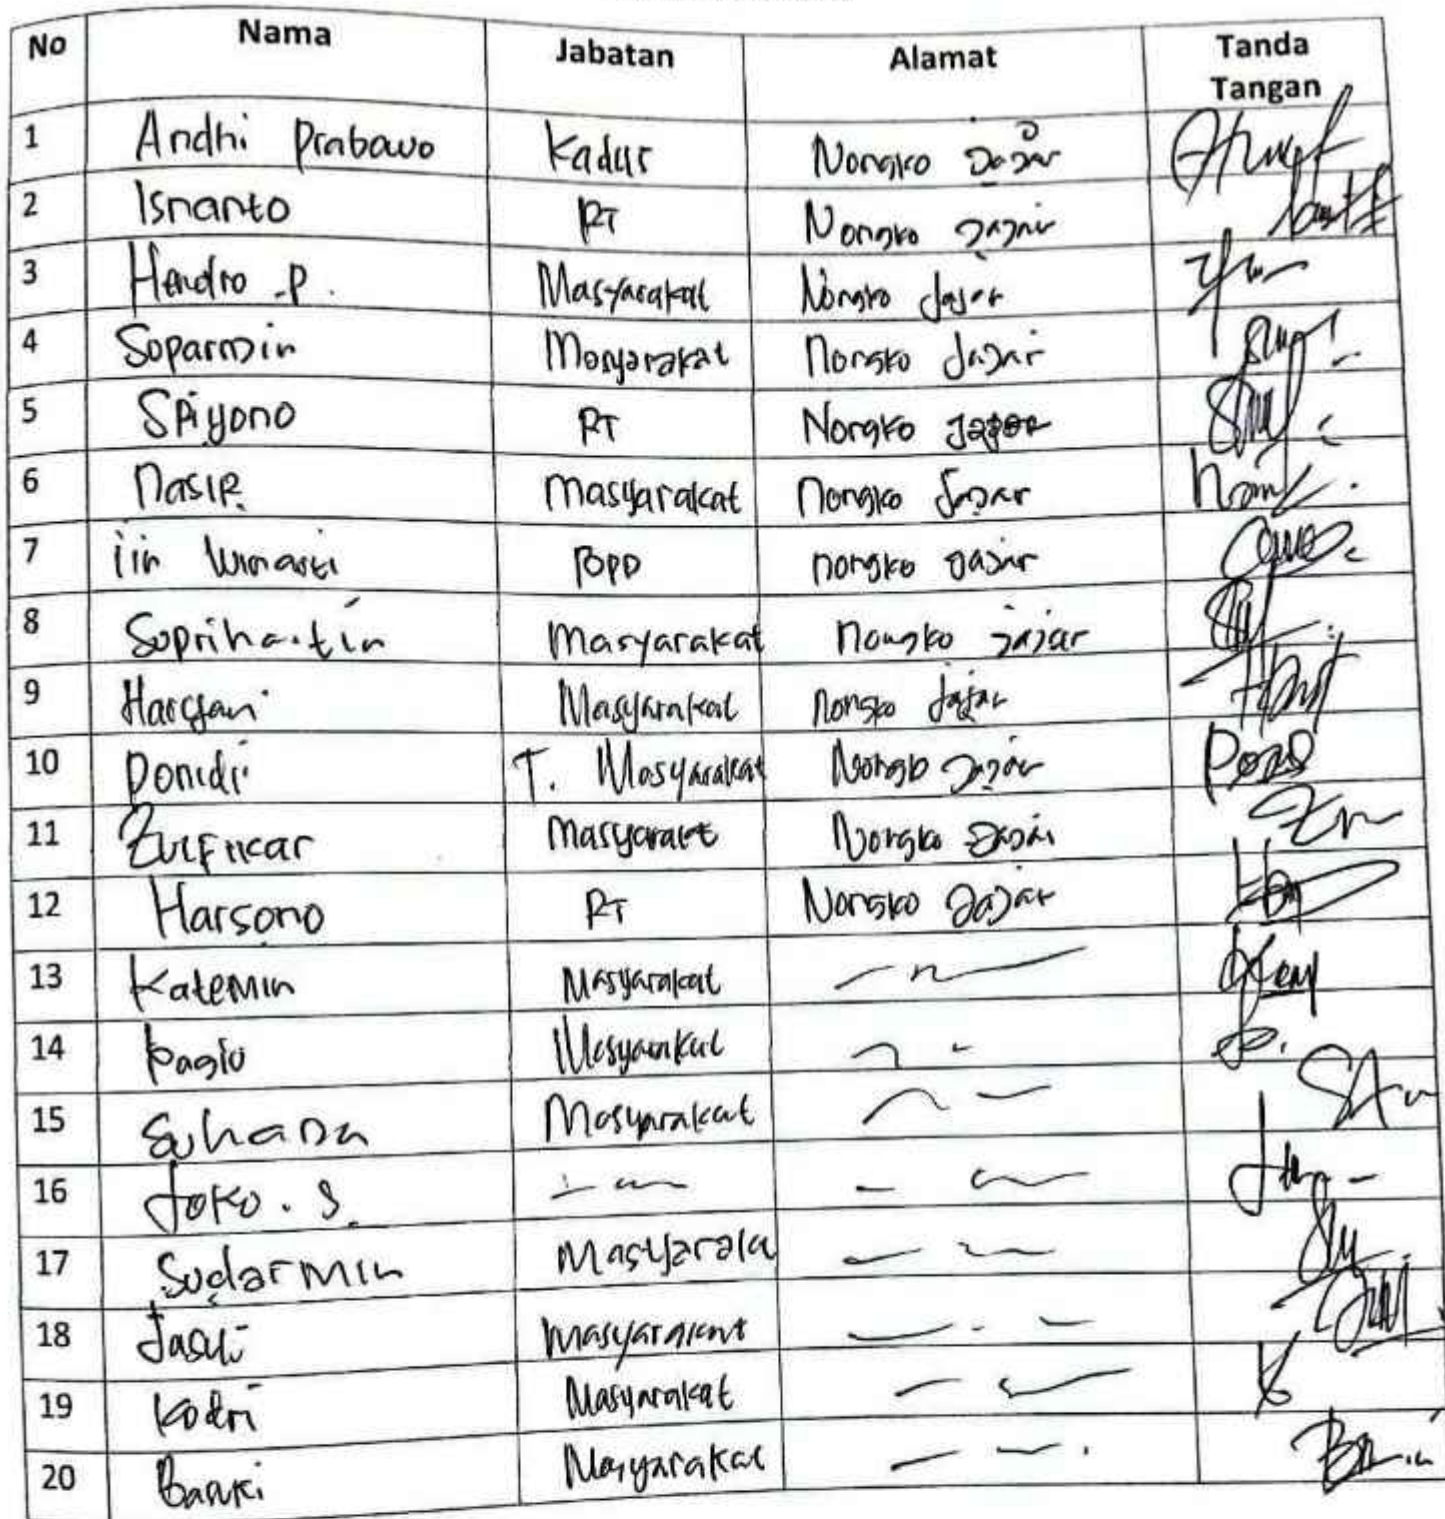 No Nama Jabatan Alamat Tanda Tangan
1 Andhi Prabowo Kadus Nongko Jajar
2 Isnanto RT Nongko Jajar
3 Hendro .P. Masyarakat Nongko Jajar
4 Soparmin Masyarakat Nongko Jajar
5 Spiyono RT Nongko Jajar
6 Nasir Masyarakat Nongko Jajar
7 iin BPD nongko Jajar
8 Soprihatin Masyarakat Nongko Jajar
9 Masyarakat Nongko Jajar
10 Donidi T. Masyarakat Nongko Jajar
11 Zulfikar Masyarakt Nongko Jajar
12 Harsono RT Nongko Jajar
13 Katemin Masyarakat
14 Pagio Masyarakat
15 Masyarakat
16 Joko . S.
17 Sudarmin Masyaraka
18 Masyarakat
19 Kodri Masyarakat
20 Masyarakat